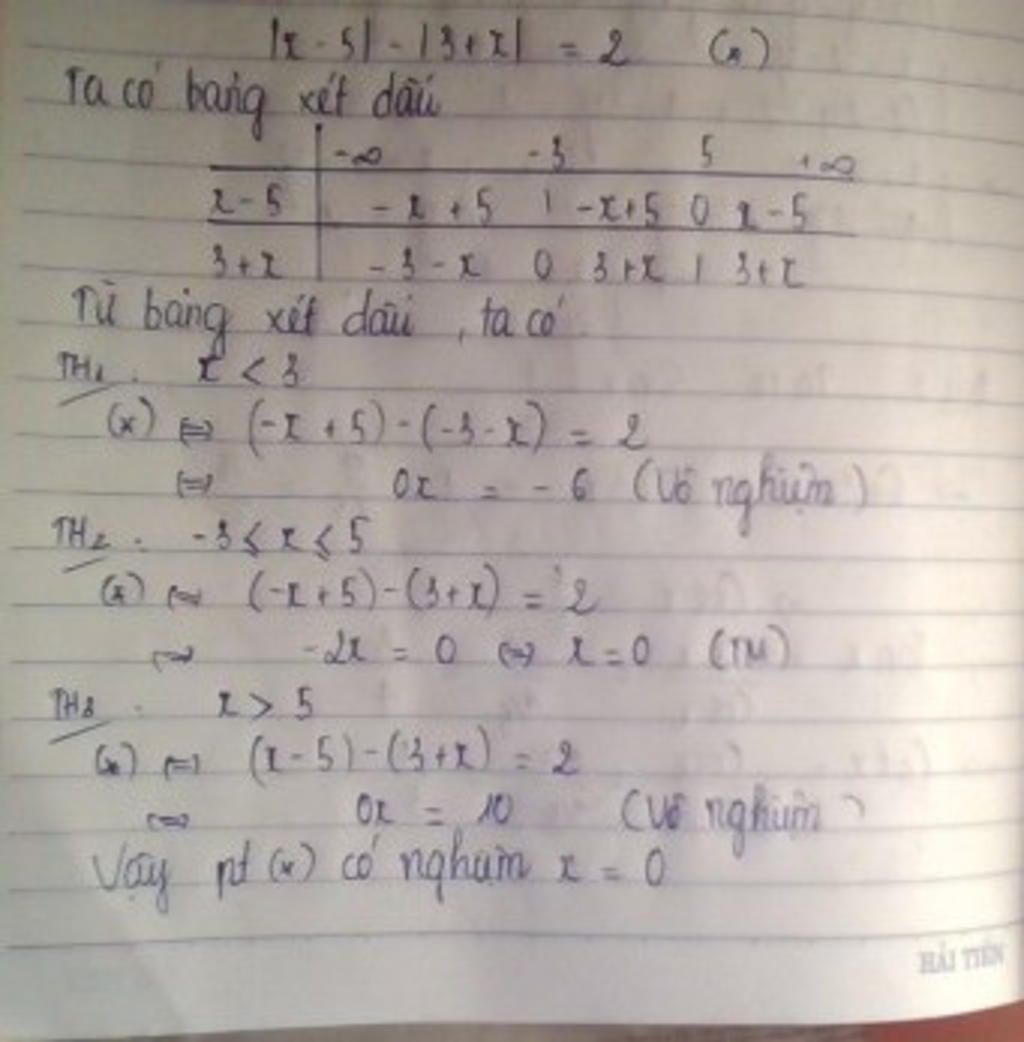 |x - 5| - |3 + x| = 2 (*)
Ta có bảng xét dấu
-∞ -3 5 +∞
x - 5 -x + 5 | -x + 5 0 x - 5
3 + x -3 - x 0 3 + x | 3 + x
Từ bảng xét dấu, ta có
TH1: x < 3
(*) ⇔ (-x + 5) - (-3 - x) = 2
⇔ 0x = -6 (Vô nghiệm)
TH2: -3 ≤ x ≤ 5
(*) ⇔ (-x + 5) - (3 + x) = 2
⇔ -2x = 0 ⇔ x = 0 (TM)
TH3: x > 5
(*) ⇔ (x - 5) - (3 + x) = 2
⇔ 0x = 10 (Vô nghiệm)
Vậy pt (*) có nghiệm x = 0
HẢI TIẾN